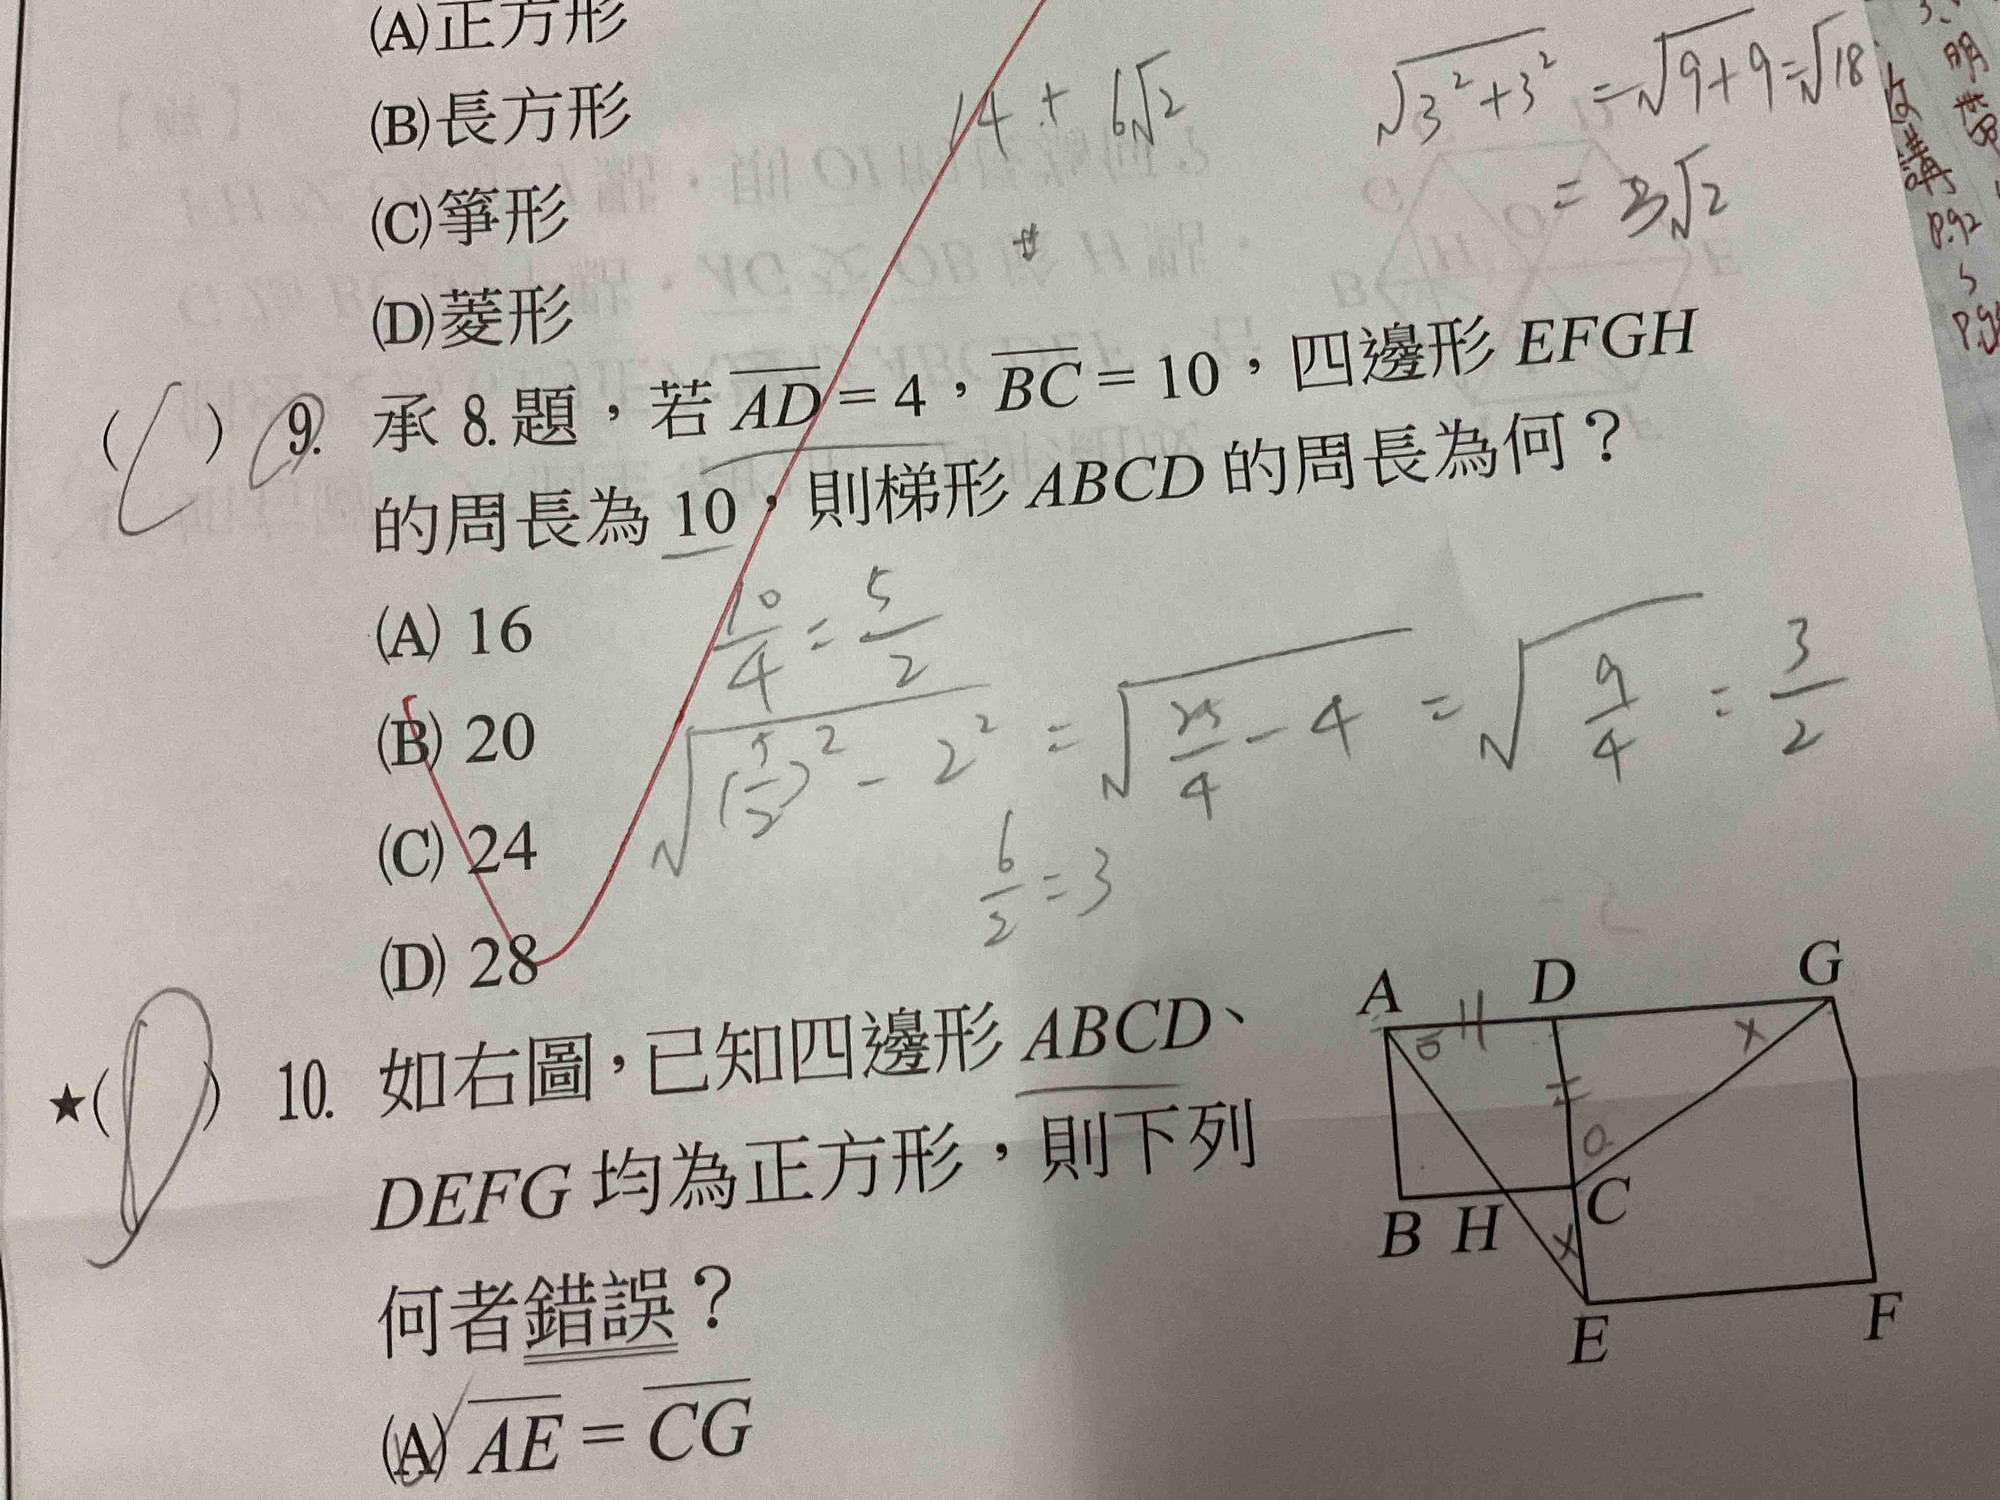 (A)正方形
(B)長方形
(C)箏形
(D)菱形
14 + 6√2
√3²+3² = √9+9 = √18
= 3√2
明
講
P.92
( ) 9. 承 8. 題，若 AD = 4，BC = 10，四邊形 EFGH
的周長為 10，則梯形 ABCD 的周長為何？
(A) 16
(B) 20
(C) 24
(D) 28
10/4 = 5/2
√(5/2)² - 2² = √25/4 - 4 = √9/4 = 3/2
6/2 = 3
★( ) 10. 如右圖，已知四邊形 ABCD、
DEFG 均為正方形，則下列
何者錯誤？
(A) AE = CG
A D G
B H C
E F